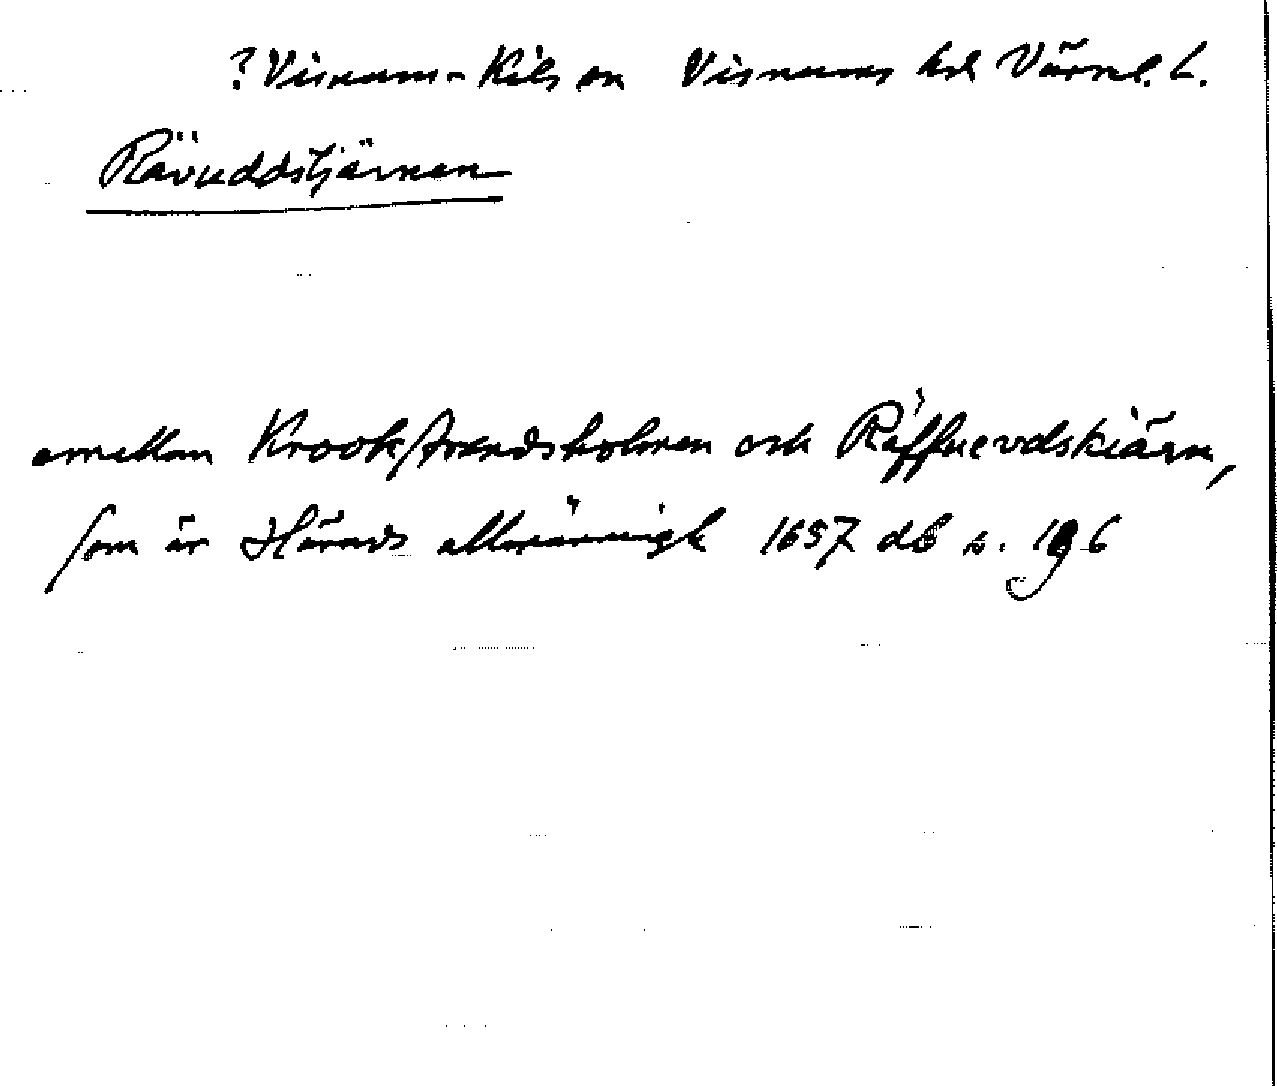 ? Visnums-Kils sn Visnums hd Värml. L.
Rävuddstjärnen
emellan Krookstrandsholmen och Räffuevdskiärn,
som är Härads allmänningh 1657 db s. 196